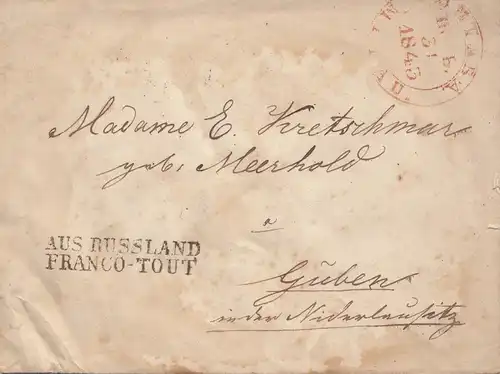 31
1845
Madame E. Kretschmar
geb. Meerhold
a
AUS RUSSLAND
FRANCO-TOUT
Guben
in der Niderlausitz